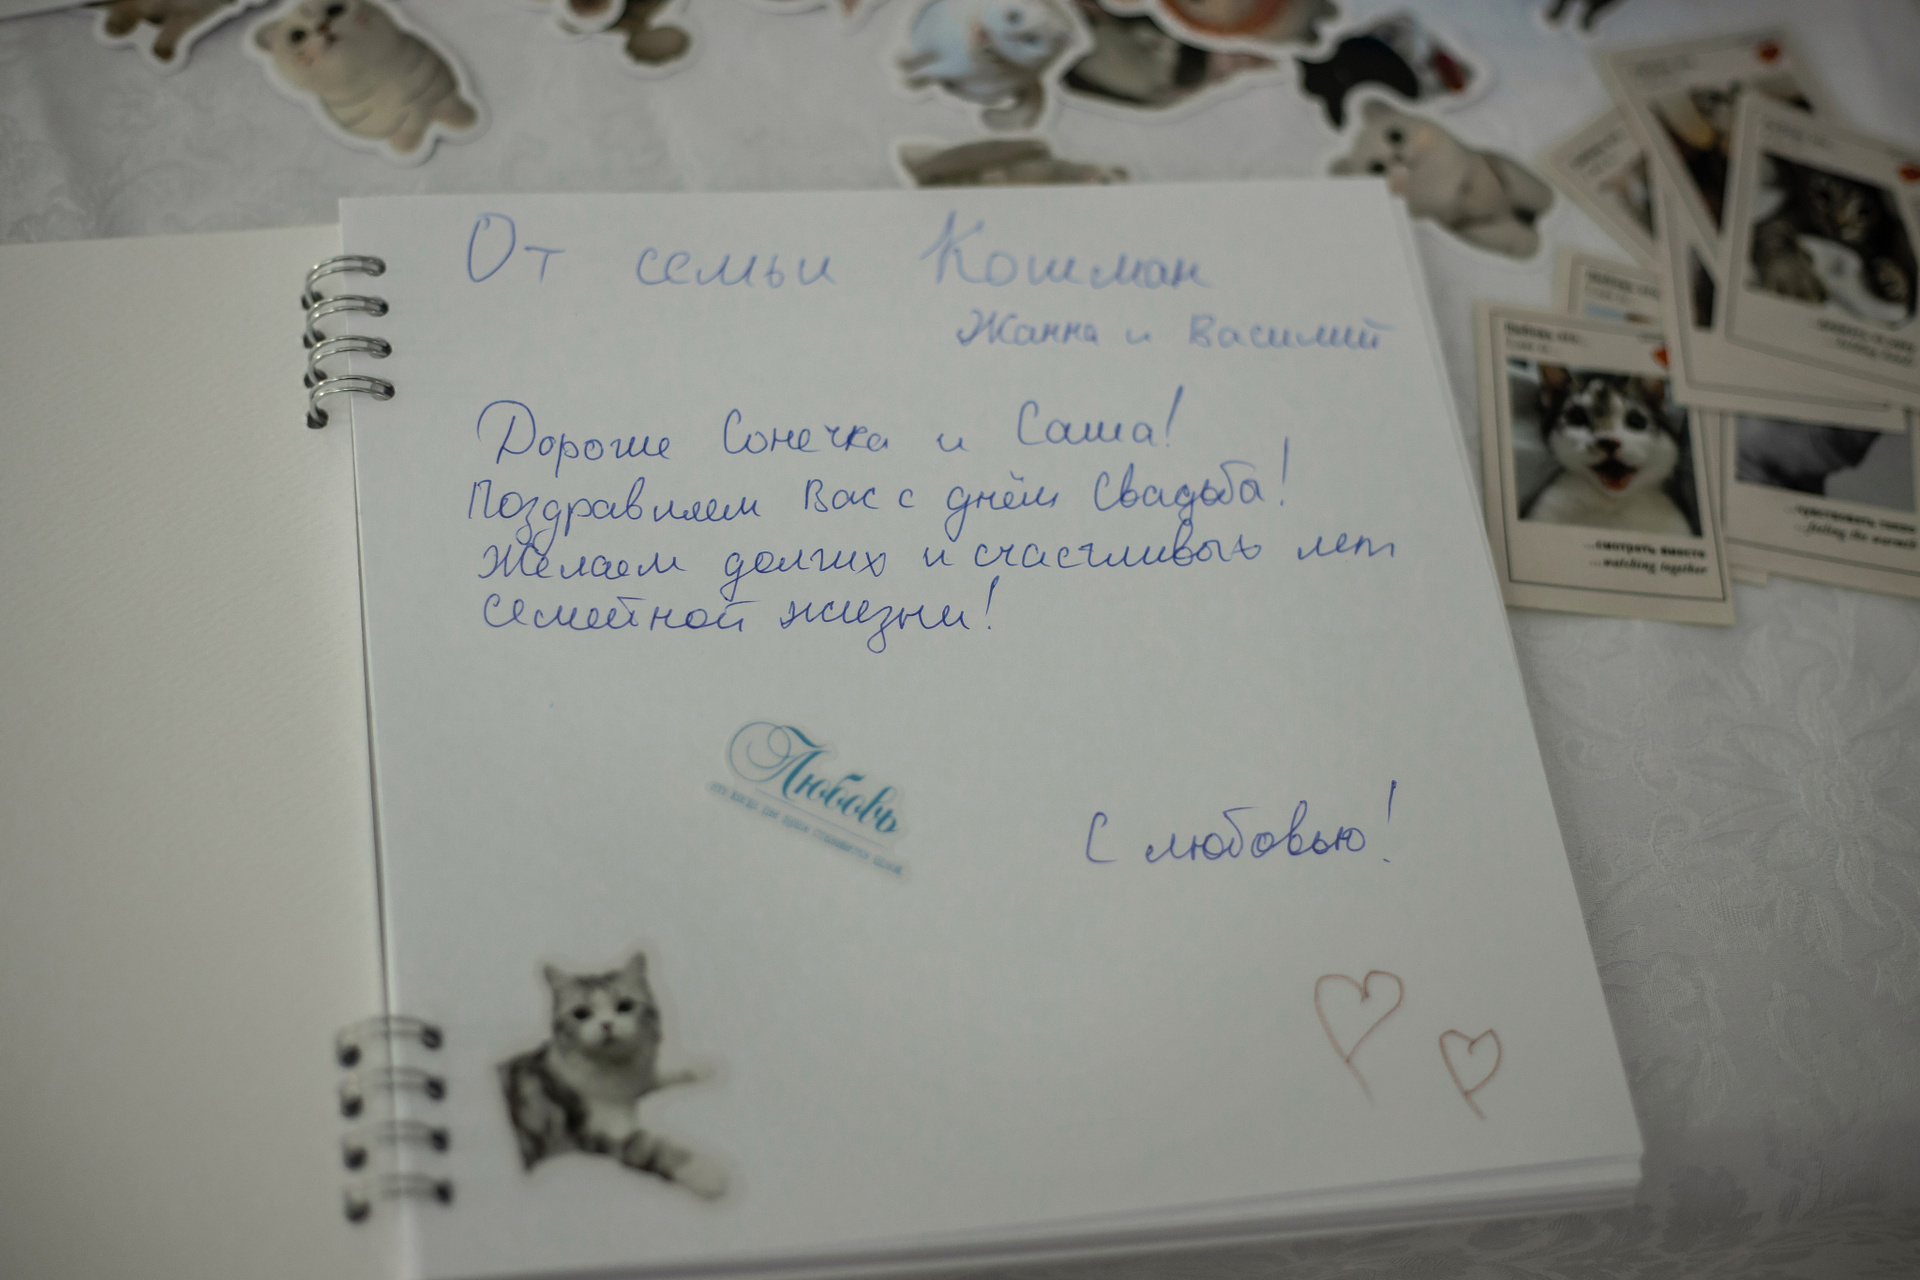 От семьи Кошман
Жанна и Василий
Дорогие Сонечка и Саша!
Поздравляем Вас с днём Свадьба!
Желаем долгих и счастливых лет
семейной жизни!
Любовь
С любовью!
...смотреть вместе
...watching together
...чувствовать
...feeling the warmth